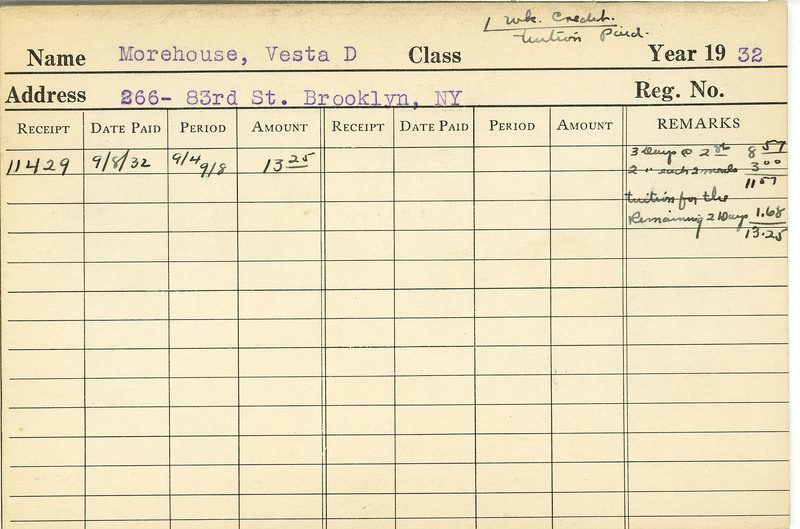 1 wk. Credit.
Tuition Paid.
Name Morehouse, Vesta D Class Year 19 32
Address 266- 83rd St. Brooklyn, NY Reg. No.
RECEIPT DATE PAID PERIOD AMOUNT RECEIPT DATE PAID PERIOD AMOUNT REMARKS
11429 9/8/32 9/4 9/8 13 25
3 Days @ 2 86 8 57
2 " each 2 meals 3 00
11 57
tuition for the
Remaining 2 Days 1.68
13.25